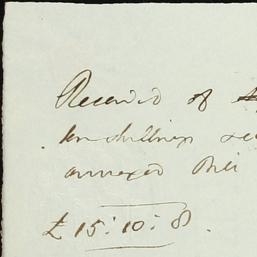 Received of
ten shillings
annexed Bill
£ 15: 10: 8.